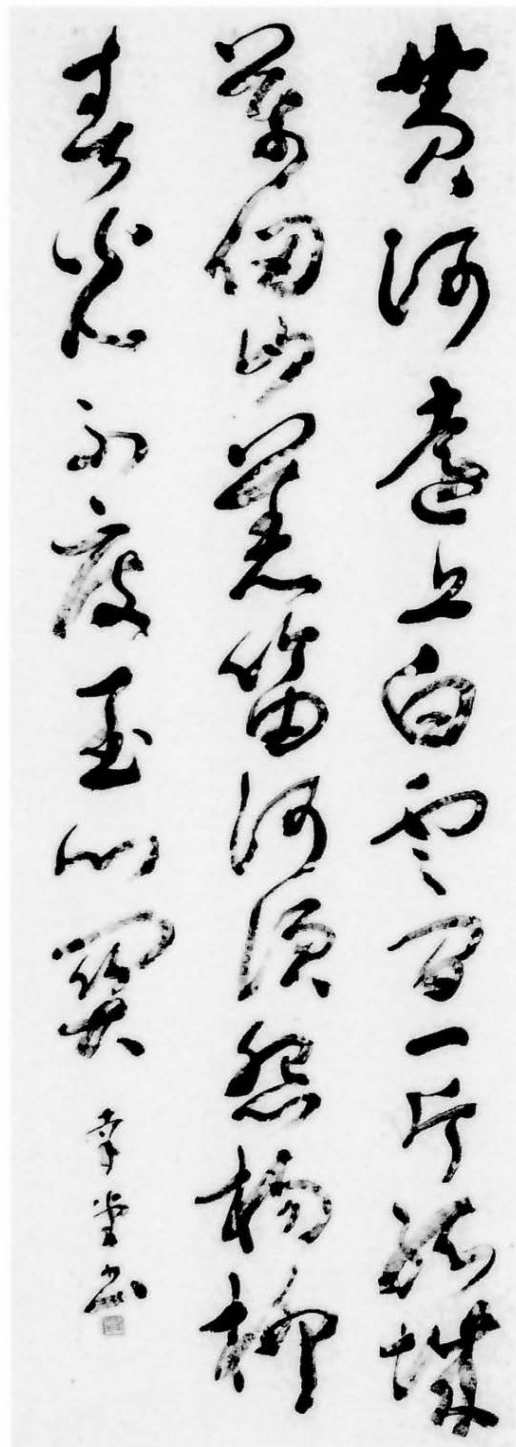 黄河遠上白雲間一片孤城
萬仞山羌笛何須怨楊柳
春光不度玉門關
幸堂书